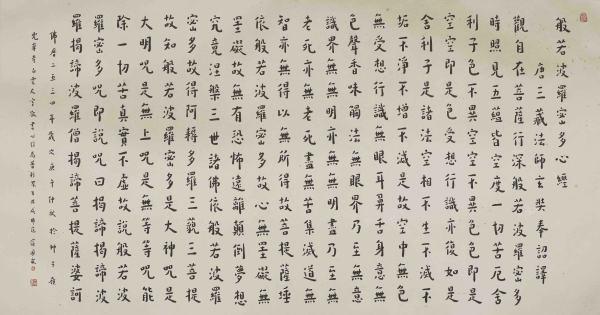 般若波羅密多心經
唐三藏法師玄奘奉詔譯
觀自在菩薩行深般若波羅密多
時照見五蘊皆空度一切苦厄舍
利子色不異空空不異色色即是
空空即是色受想行識亦復如是
舍利子是諸法空相不生不滅不
垢不淨不增不減是故空中無色
無受想行識無眼耳鼻舌身意無
色聲香味觸法無眼界乃至無意
識界無無明亦無無明盡乃至無
老死亦無老死盡無苦集滅道無
智亦無得以無所得故菩提薩埵
依般若波羅密多故心無罣礙無
罣礙故無有恐怖遠離顛倒夢想
究竟涅槃三世諸佛依般若波羅
密多故得阿耨多羅三藐三菩提
故知般若波羅密多是大神咒是
大明咒是無上咒是無等等咒能
除一切苦真實不虛故說般若波
羅密多咒即說咒曰揭諦揭諦波
羅揭諦波羅僧揭諦菩提薩婆訶
佛曆二五三四年歲次庚午仲秋於